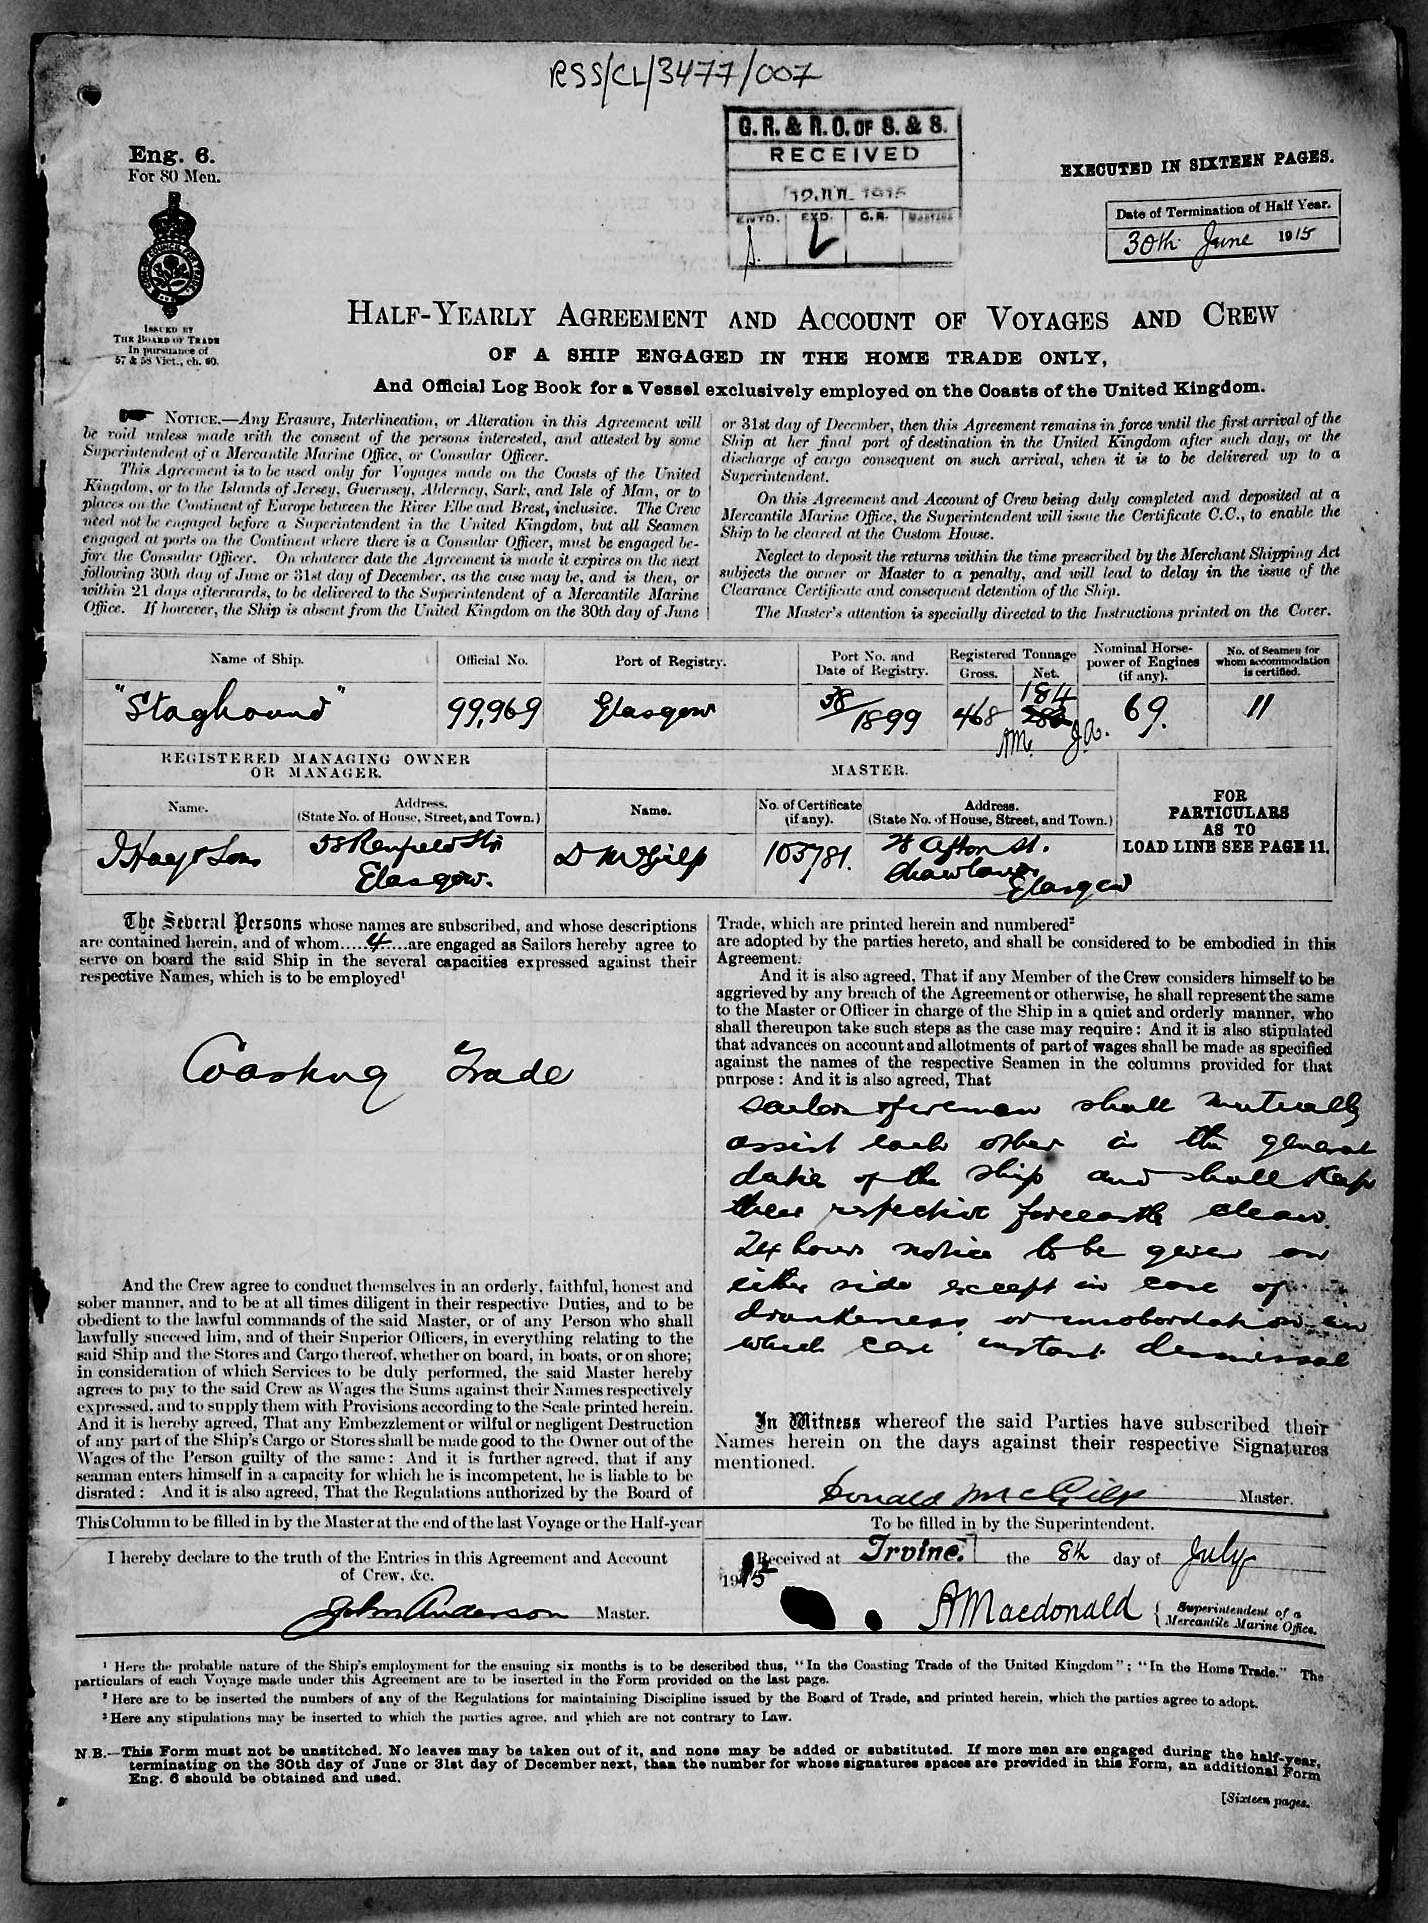 RSS/CL/3477/007
G. R. & R. O. OF S. & S.
RECEIVED
1915
ENTD. EXD. C.R.
Eng. 6.
For 80 Men.
ISSUED BY
THE BOARD OF TRADE
In pursuance of
57 & 58 Vict., ch. 60.
EXECUTED IN SIXTEEN PAGES.
Date of Termination of Half Year.
30th June 1915
HALF-YEARLY AGREEMENT AND ACCOUNT OF VOYAGES AND CREW
OF A SHIP ENGAGED IN THE HOME TRADE ONLY,
And Official Log Book for a Vessel exclusively employed on the Coasts of the United Kingdom.
NOTICE.—Any Erasure, Interlineation, or Alteration in this Agreement will
be void unless made with the consent of the persons interested, and attested by some
Superintendent of a Mercantile Marine Office, or Consular Officer.
This Agreement is to be used only for Voyages made on the Coasts of the United
Kingdom, or to the Islands of Jersey, Guernsey, Alderney, Sark, and Isle of Man, or to
places on the Continent of Europe between the River Elbe and Brest, inclusive. The Crew
need not be engaged before a Superintendent in the United Kingdom, but all Seamen
engaged at ports on the Continent where there is a Consular Officer, must be engaged be-
fore the Consular Officer. On whatever date the Agreement is made it expires on the next
following 30th day of June or 31st day of December, as the case may be, and is then, or
within 21 days afterwards, to be delivered to the Superintendent of a Mercantile Marine
Office. If however, the Ship is absent from the United Kingdom on the 30th day of June
or 31st day of December, then this Agreement remains in force until the first arrival of the
Ship at her final port of destination in the United Kingdom after such day, or the
discharge of cargo consequent on such arrival, when it is to be delivered up to a
Superintendent.
On this Agreement and Account of Crew being duly completed and deposited at a
Mercantile Marine Office, the Superintendent will issue the Certificate C.C., to enable the
Ship to be cleared at the Custom House.
Neglect to deposit the returns within the time prescribed by the Merchant Shipping Act
subjects the owner or Master to a penalty, and will lead to delay in the issue of the
Clearance Certificate and consequent detention of the Ship.
The Master's attention is specially directed to the Instructions printed on the Cover.
Name of Ship. Official No. Port of Registry. Port No. and Date of Registry. Registered Tonnage Gross. Net. Nominal Horse-power of Engines (if any). No. of Seamen for whom accommodation is certified.
"Staghound" 99,969 Glasgow 38/1899 468 184 69. 11
AM. J.A.
REGISTERED MANAGING OWNER OR MANAGER.
MASTER.
Name. Address. (State No. of House, Street, and Town.) Name. No. of Certificate (if any). Address. (State No. of House, Street, and Town.)
FOR PARTICULARS AS TO LOAD LINE SEE PAGE 11.
J Hay & Sons 58 Renfield Str Glasgow. D McGilp 105781. 78 Afton St. Shawlands Glasgow
The Several Persons whose names are subscribed, and whose descriptions
are contained herein, and of whom.....4.....are engaged as Sailors hereby agree to
serve on board the said Ship in the several capacities expressed against their
respective Names, which is to be employed¹
Coasting Trade
And the Crew agree to conduct themselves in an orderly, faithful, honest and
sober manner, and to be at all times diligent in their respective Duties, and to be
obedient to the lawful commands of the said Master, or of any Person who shall
lawfully succeed him, and of their Superior Officers, in everything relating to the
said Ship and the Stores and Cargo thereof, whether on board, in boats, or on shore;
in consideration of which Services to be duly performed, the said Master hereby
agrees to pay to the said Crew as Wages the Sums against their Names respectively
expressed, and to supply them with Provisions according to the Scale printed herein.
And it is hereby agreed, That any Embezzlement or wilful or negligent Destruction
of any part of the Ship's Cargo or Stores shall be made good to the Owner out of the
Wages of the Person guilty of the same: And it is further agreed, that if any
seaman enters himself in a capacity for which he is incompetent, he is liable to be
disrated: And it is also agreed, That the Regulations authorized by the Board of
Trade, which are printed herein and numbered²
are adopted by the parties hereto, and shall be considered to be embodied in this
Agreement.
And it is also agreed, That if any Member of the Crew considers himself to be
aggrieved by any breach of the Agreement or otherwise, he shall represent the same
to the Master or Officer in charge of the Ship in a quiet and orderly manner, who
shall thereupon take such steps as the case may require: And it is also stipulated
that advances on account and allotments of part of wages shall be made as specified
against the names of the respective Seamen in the columns provided for that
purpose: And it is also agreed, That
sailors & firemen shall mutually
assist each other in the general
duties of the ship and shall keep
their respective forecastle clean.
24 hours notice to be given on
either side except in case of
drunkeness or insobordation in
which case instant dismissal
In Witness whereof the said Parties have subscribed their
Names herein on the days against their respective Signatures
mentioned.
Donald McGilp Master.
This Column to be filled in by the Master at the end of the last Voyage or the Half-year
I hereby declare to the truth of the Entries in this Agreement and Account
of Crew, &c.
John Anderson Master.
To be filled in by the Superintendent.
Received at Irvine. the 8th day of July
1915
A Macdonald { Superintendent of a Mercantile Marine Office.
¹ Here the probable nature of the Ship's employment for the ensuing six months is to be described thus, "In the Coasting Trade of the United Kingdom"; "In the Home Trade." The
particulars of each Voyage made under this Agreement are to be inserted in the Form provided on the last page.
² Here are to be inserted the numbers of any of the Regulations for maintaining Discipline issued by the Board of Trade, and printed herein, which the parties agree to adopt.
³ Here any stipulations may be inserted to which the parties agree, and which are not contrary to Law.
N.B.—This Form must not be unstitched. No leaves may be taken out of it, and none may be added or substituted. If more men are engaged during the half-year,
terminating on the 30th day of June or 31st day of December next, than the number for whose signatures spaces are provided in this Form, an additional Form
Eng. 6 should be obtained and used.
[Sixteen pages.